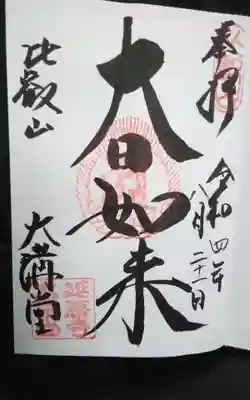 奉拝
令和四年
八月二十一日
大日如来
比叡山
大講堂
延暦寺